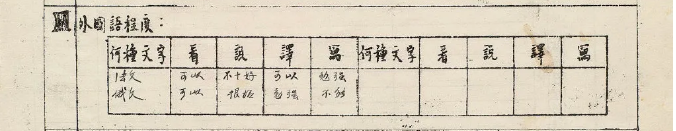 四 外國語程度：
何種文字 看 說 譯 寫 何種文字 看 說 譯 寫
德文 可以 不十好 可以 勉強
俄文 可以 很好 勉強 不能